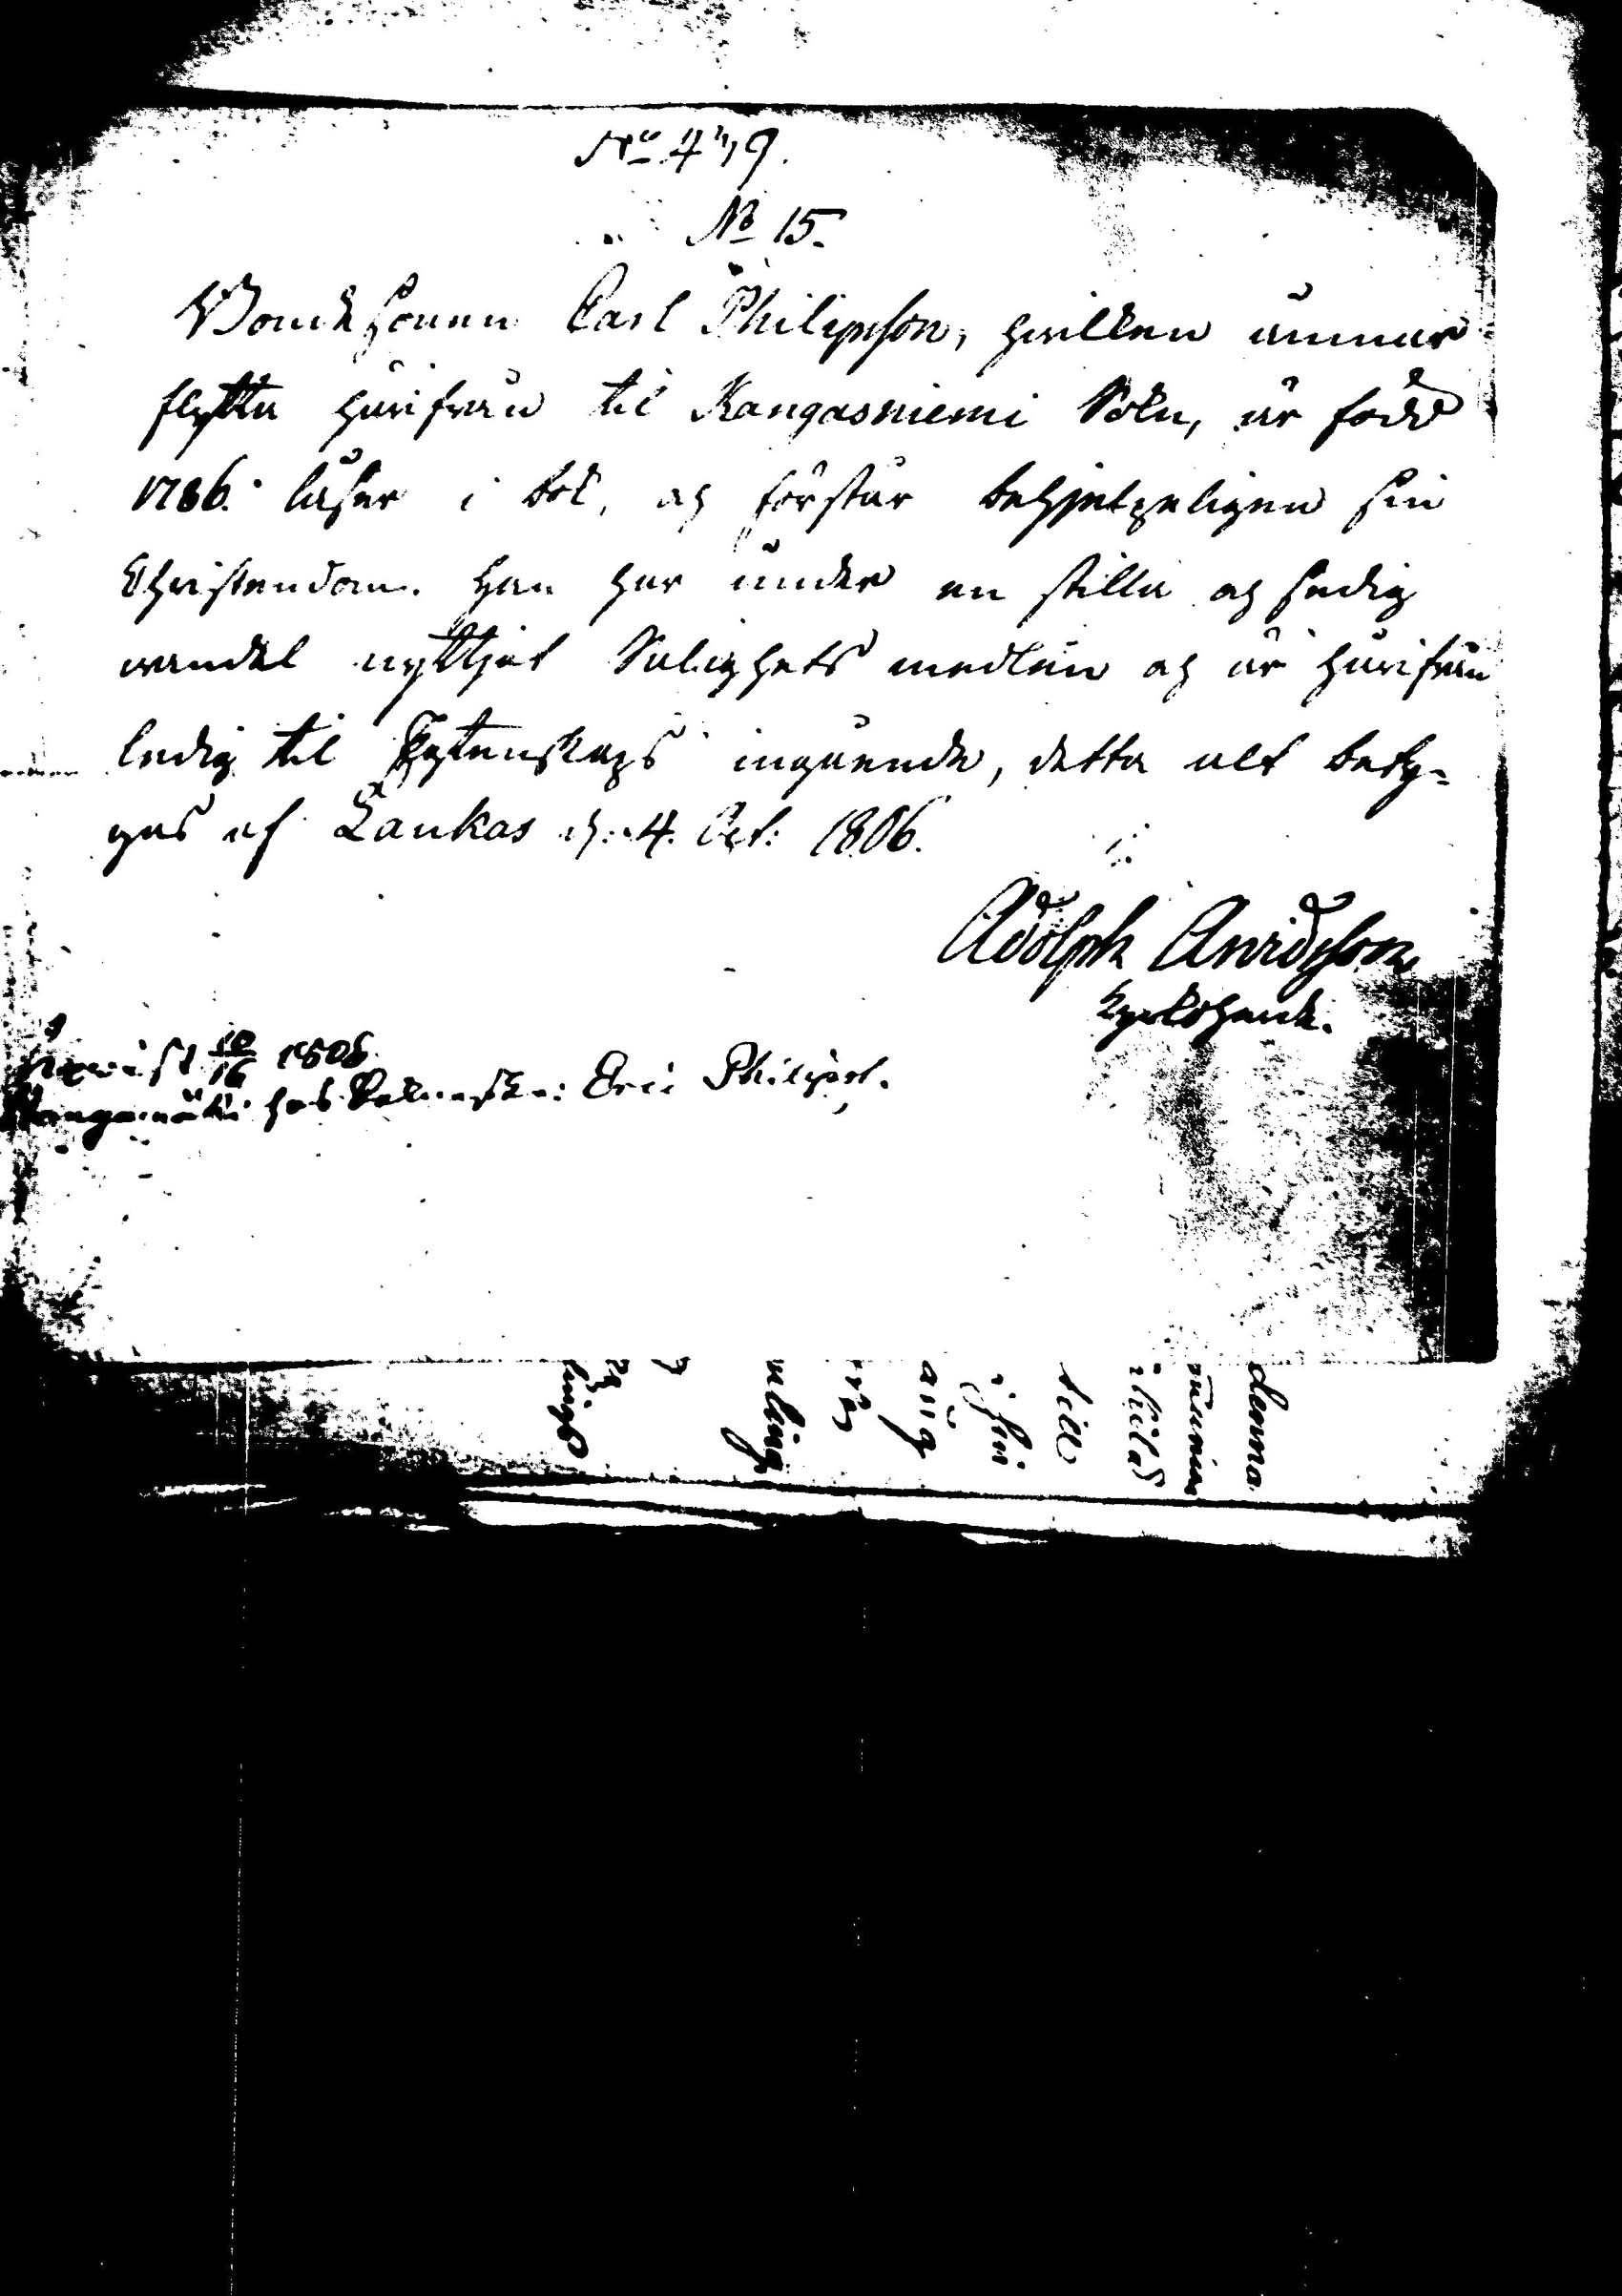 No 449.
No 15.
Bondesonen Carl Philipsson, hvilken ämnar
flytta härifrån til Kangasniemi Sokn, är född
1786. läser i bok, och förstår behjelpeligen sin
Christendom. Han har under en stilla och sedig
vandel nyttjat Salighets medlen och är härifrån
ledig til Ägtenskaps ingående, detta alt bety-
gas af Laukas d: 4. Oct: 1806.
Adolph Arvidsson
Kyrkoherde.
upvist 10/16 1806
hos Eric Philipss.
denna
till
i sin